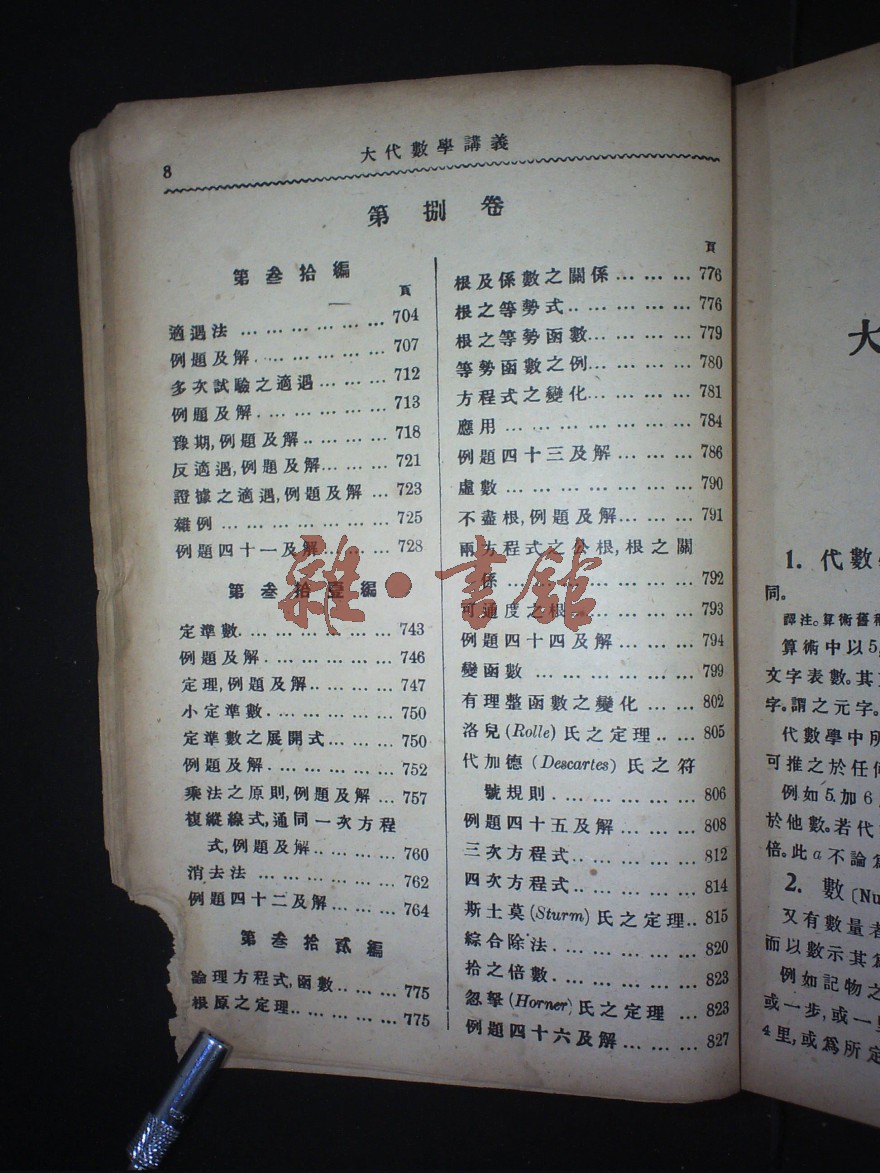 8
大代數學講義
第捌卷
第叁拾編
頁
適遇法 ... ... ... ... ... ... 704
例題及解. ... ... ... ... ... 707
多次試驗之適遇... ... ... 712
例題及解. ... ... ... ... ... 713
豫期,例題及解.. ... ... ... 718
反適遇,例題及解... ... ... 721
證據之適遇,例題及解 ... 723
雜例 ... ... ... ... ... ... ... 725
例題四十一及解... ... ... 728
第叁拾壹編
定準數. ... ... ... ... ... ... 743
例題及解. ... ... ... ... ... 746
定理,例題及解.. ... ... ... 747
小定準數. ... ... ... ... ... 750
定準數之展開式... ... ... 750
例題及解... ... ... ... ... 752
乘法之原則,例題及解 ... 757
複縱線式,通同一次方程
式,例題及解.. ... ... ... 760
消去法 ... ... ... ... ... ... 762
例題四十二及解... ... ... 764
第叁拾貳編
論理方程式,函數.. ... ... 775
根原之定理.. ... ... ... ... 775
頁
根及係數之關係 ... ... ... 776
根之等勢式.. ... ... ... ... 776
根之等勢函數... ... ... ... 779
等勢函數之例... ... ... ... 780
方程式之變化... ... ... ... 781
應用 ... ... ... ... ... ... ... 784
例題四十三及解 ... ... ... 786
虛數 ... ... ... ... ... ... ... 790
不盡根,例題及解... ... ... 791
兩方程式之公根,根之關
係 ... ... ... ... ... ... ... 792
可通度之根... ... ... ... 793
例題四十四及解 ... ... ... 794
變函數 ... ... ... ... ... ... 799
有理整函數之變化 ... ... 802
洛兒(Rolle)氏之定理 .. ... 805
代加德(Descartes)氏之符
號規則. ... ... ... ... ... 806
例題四十五及解 ... ... ... 808
三次方程式.. ... ... ... ... 812
四次方程式.. ... ... ... ... 814
斯土莫(Sturm)氏之定理.. 815
綜合除法. ... ... ... ... ... 820
拾之倍數. ... ... ... ... ... 823
忽拏(Horner)氏之定理 ... 823
例題四十六及解... ... ... 827
雜·書館
大
1. 代數
同。
譯注。算術舊
算術中以5,
文字表數。其
字。謂之元字。
代數學中所
可推之於任
例如5加6
於他數。若代
倍。此a不論
2. 數 (Nu
又有數量
而以數示其
例如記物之
或一步,或一
4里,或爲所定